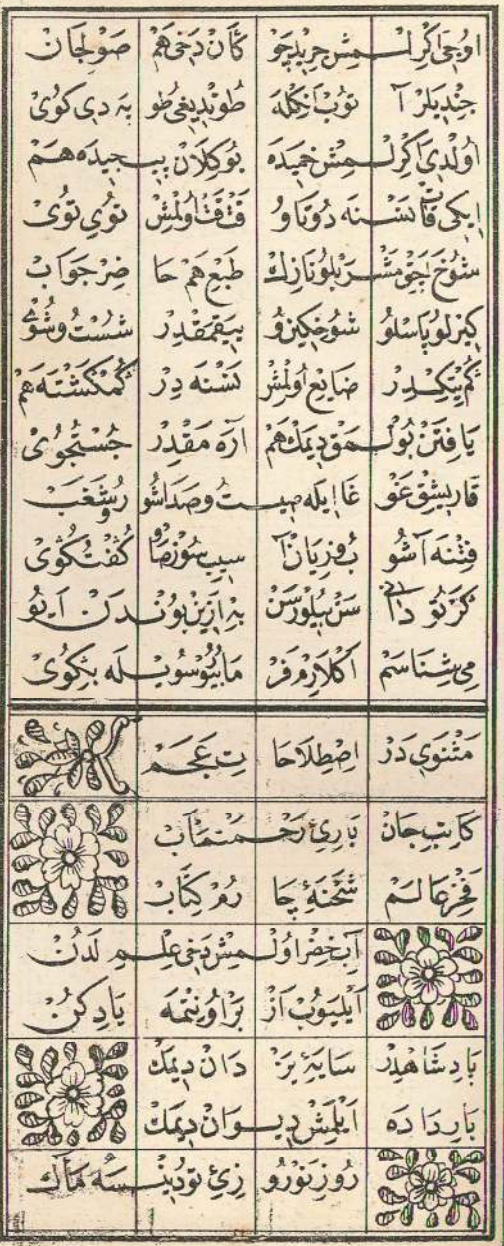 اوجى اكرلـمش حريدچو كان دخى هم صولجان
جنديلر آ توب اڭله طوتديغى طو به دى كوى
اولدى اكرلـمش خميده بوكلان پيـچيده هم
ايكى قات نسنه دوتا و قت قت اولمش توى توى
شوخ اجى مشـربلو نازك طبع هم حا ضر جواب
كيزلو پاسلو شوخكين و ييقمقدر شست و شوى
كم يتكدر ضايع اولمش نسنه در كمكشته هم
يافتن بولـمق ديمك هم آره مقدر جستجوى
قاريشق غو غا ايله صيت و صدا شو ر و شغب
فتنه آشو سوز كفتكوى
كر تو دانى سن بيلورسن به ازين بوندن ايو
مى شناسم اكلارم فر ما بيو سويـله بكوى
مثنوى در اصطلاحا ت عجم
كاتب جان بارئ رحـمتمآب
فخر عالم شحنۀ چا رم كتاب
آب خضر اولـمش دخى علم لدن
ايليوب از بر اونتمه ياد كن
بادشاهدر سايۀ يز دان ديمك
بارداده ايلمش ديـوان ديمك
روز نورو